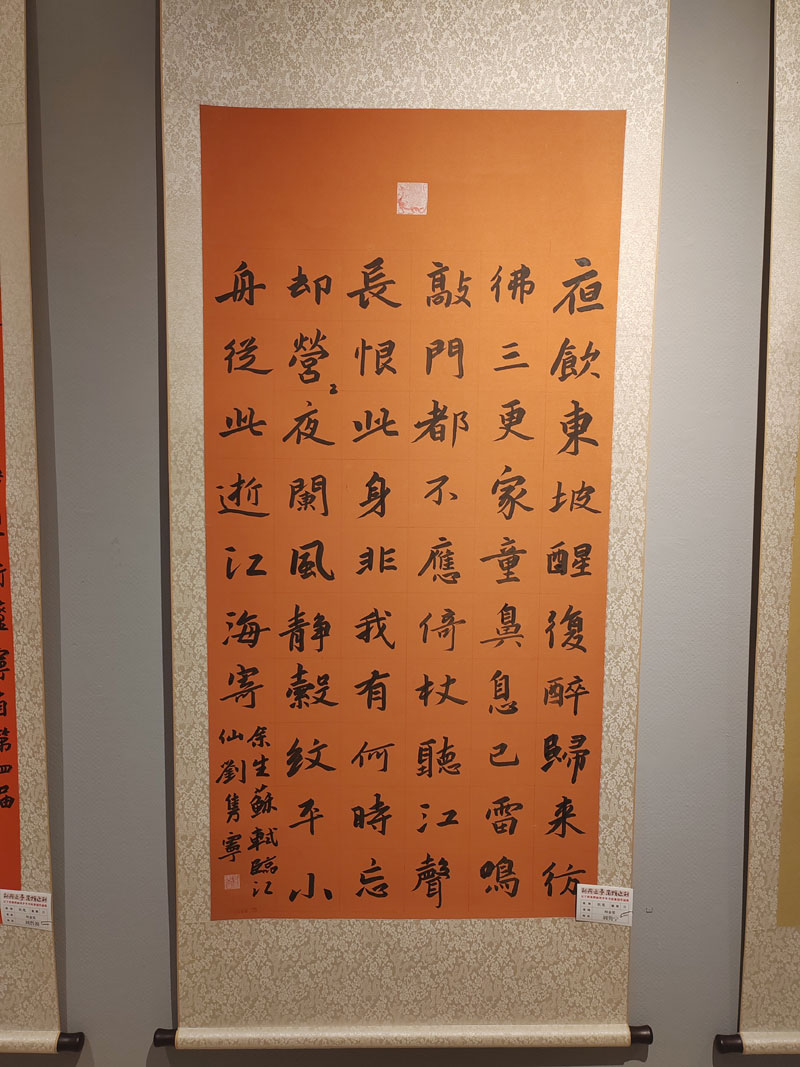 亱飲東坡醒復醉歸来彷
彿三更家童鼻息已雷鳴
敲門都不應倚杖聽江聲
長恨此身非我有何時忘
却營〻夜闌風靜縠紋平小
舟從此逝江海寄
余生蘇軾臨江
仙劉隽寧
第四屆